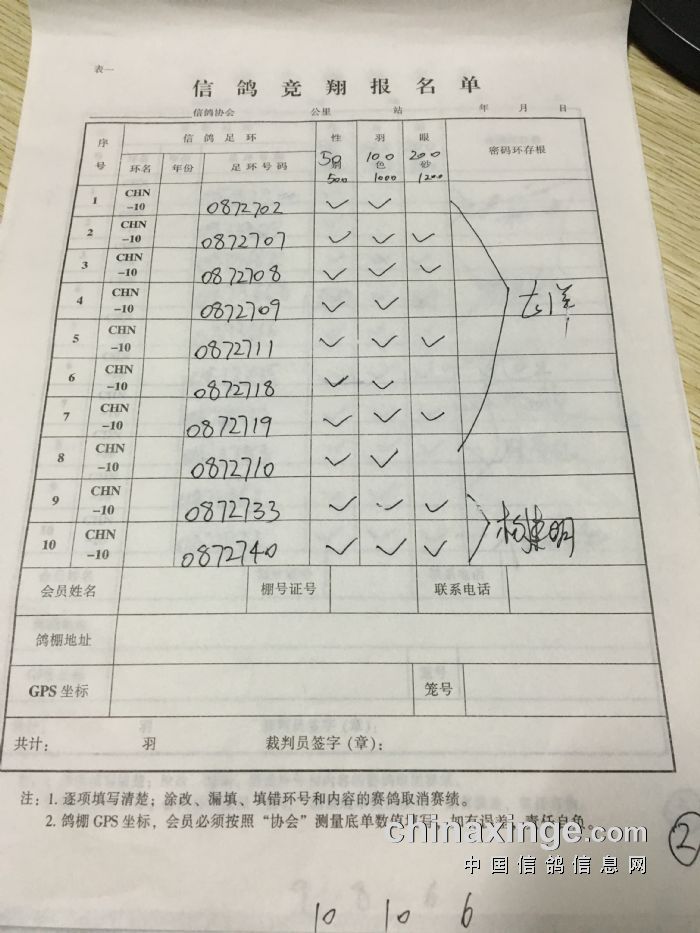 表一
信鸽竞翔报名单
信鸽协会 公里 站 年 月 日
序号 信鸽足环 性 羽 眼 密码环存根
环名 年份 足环号码 别 色 砂
50 100 200
500 1000 1200
1 CHN-10 0872702 ✓ ✓
2 CHN-10 0872707 ✓ ✓ ✓
3 CHN-10 0872708 ✓ ✓ ✓
4 CHN-10 0872709 ✓ ✓
5 CHN-10 0872711 ✓ ✓ ✓
6 CHN-10 0872718 ✓ ✓
7 CHN-10 0872719 ✓ ✓ ✓
8 CHN-10 0872710 ✓ ✓
9 CHN-10 0872733 ✓ ✓ ✓
10 CHN-10 0872740 ✓ ✓ ✓
会员姓名 棚号证号 联系电话
鸽棚地址
GPS 坐标 笼号
共计： 羽 裁判员签字（章）：
注：1. 逐项填写清楚；涂改、漏填、填错环号和内容的赛鸽取消赛绩。
2. 鸽棚 GPS 坐标，会员必须按照“协会”测量底单数值填写，如有误差，责任自负。
chinaxinge.com
中国信鸽信息网
②
10 10 6